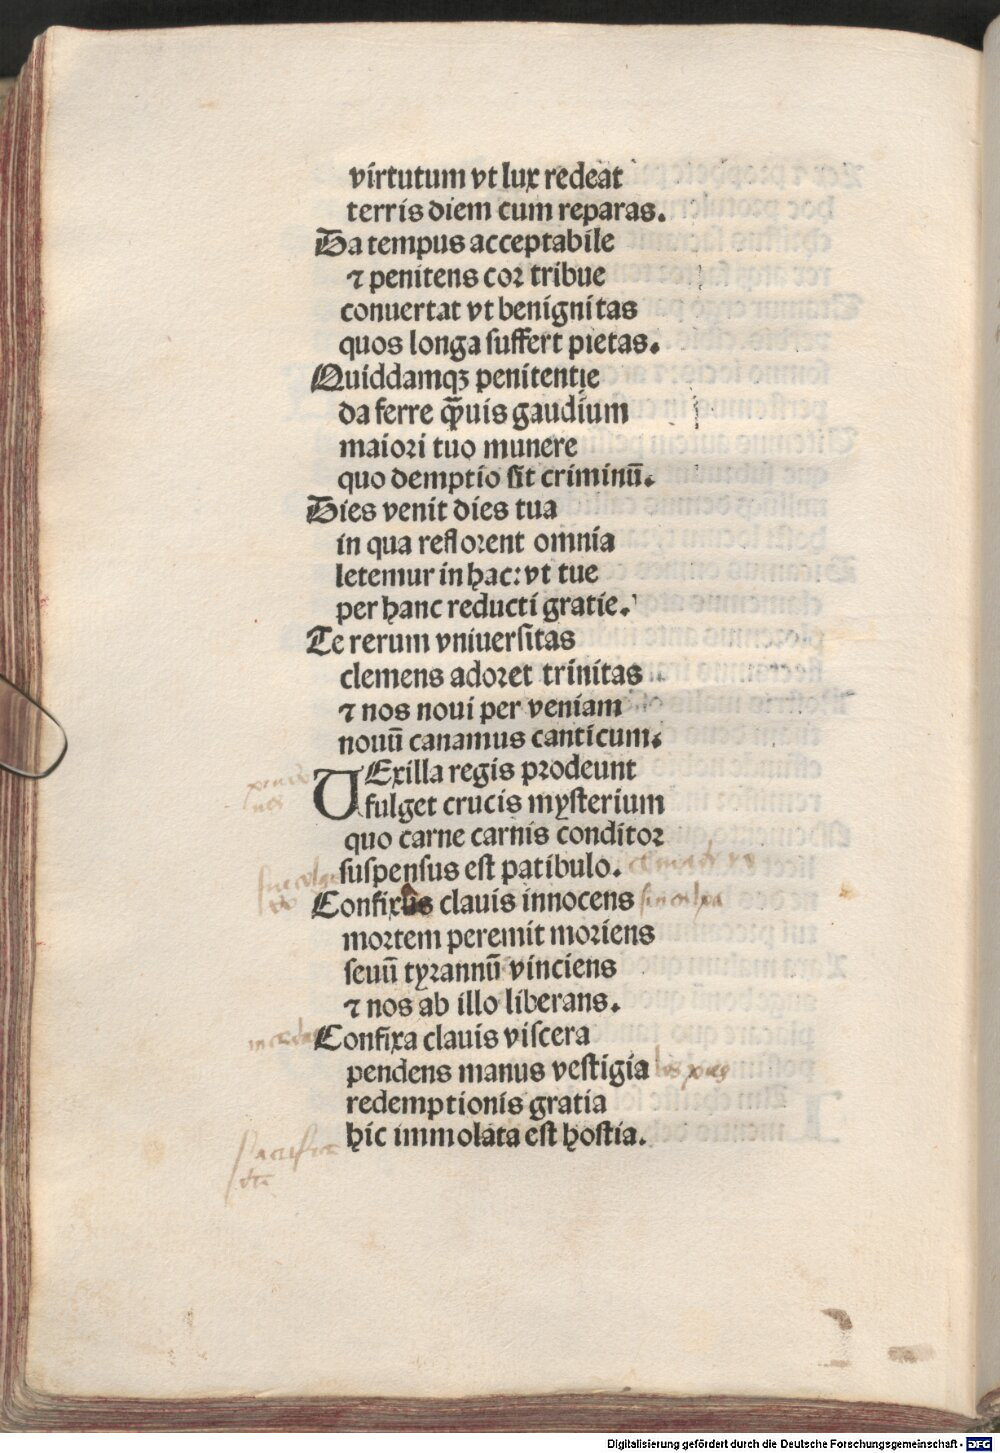 virtutum vt lux redeat
terris diem cum reparas.
Da tempus acceptabile
⁊ penitens coꝛ tribue
conuertat vt benignitas
quos longa ſuffert pietas.
Quiddamqꝫ penitentie
da ferre q̄uis gaudium
maioꝛi tuo munere
quo demptio ſit criminū.
Dies venit dies tua
in qua refloꝛent omnia
letemur in hac: vt tue
per hanc reducti gratie.
Te rerum vniuerſitas
clemens adoꝛet trinitas
⁊ nos noui per veniam
nouū canamus canticum.
VExilla regis pꝛodeunt
fulget crucis myſterium
quo carne carnis conditoꝛ
ſuſpenſus eſt patibulo.
Confixus clauis innocens sin culpa
moꝛtem peremit moꝛiens
ſeuū tyꝛannū vinciens
⁊ nos ab illo liberans.
Confixa clauis viſcera
pendens manus veſtigia
redemptionis gratia
hic immolata eſt hoſtia.
Digitalisierung gefördert durch die Deutsche Forschungsgemeinschaft - DFG